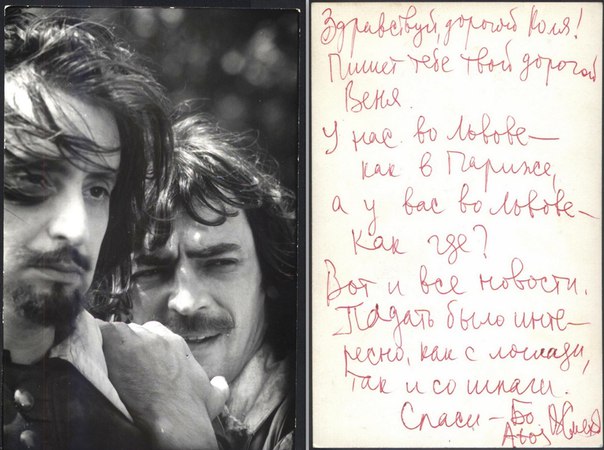 Здравствуй, дорогой Коля!
Пишет тебе твой дорогой
Веня.
У нас во Львове —
как в Париже,
а у вас во Львове —
как где?
Вот и все новости.
Падать было инте-
ресно, как с лошади,
так и со шпаги.
Спаси-Бо
Атос